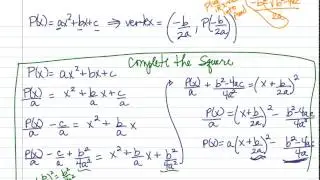 P(x) = ax²+bx+c ⇒ vertex = (-b/2a, P(-b/2a))
Complete the Square
P(x) = ax²+bx+c
P(x)/a = x² + b/a x + c/a
P(x)/a - c/a = x² + b/a x
P(x)/a - c/a + b²/4a² = x² + b/a x + b²/4a²
P(x)/a + b²-4ac/4a² = (x + b/2a)²
P(x)/a = (x + b/2a)² - b²-4ac/4a²
P(x) = a(x + b/2a)² - b²-4ac/4a